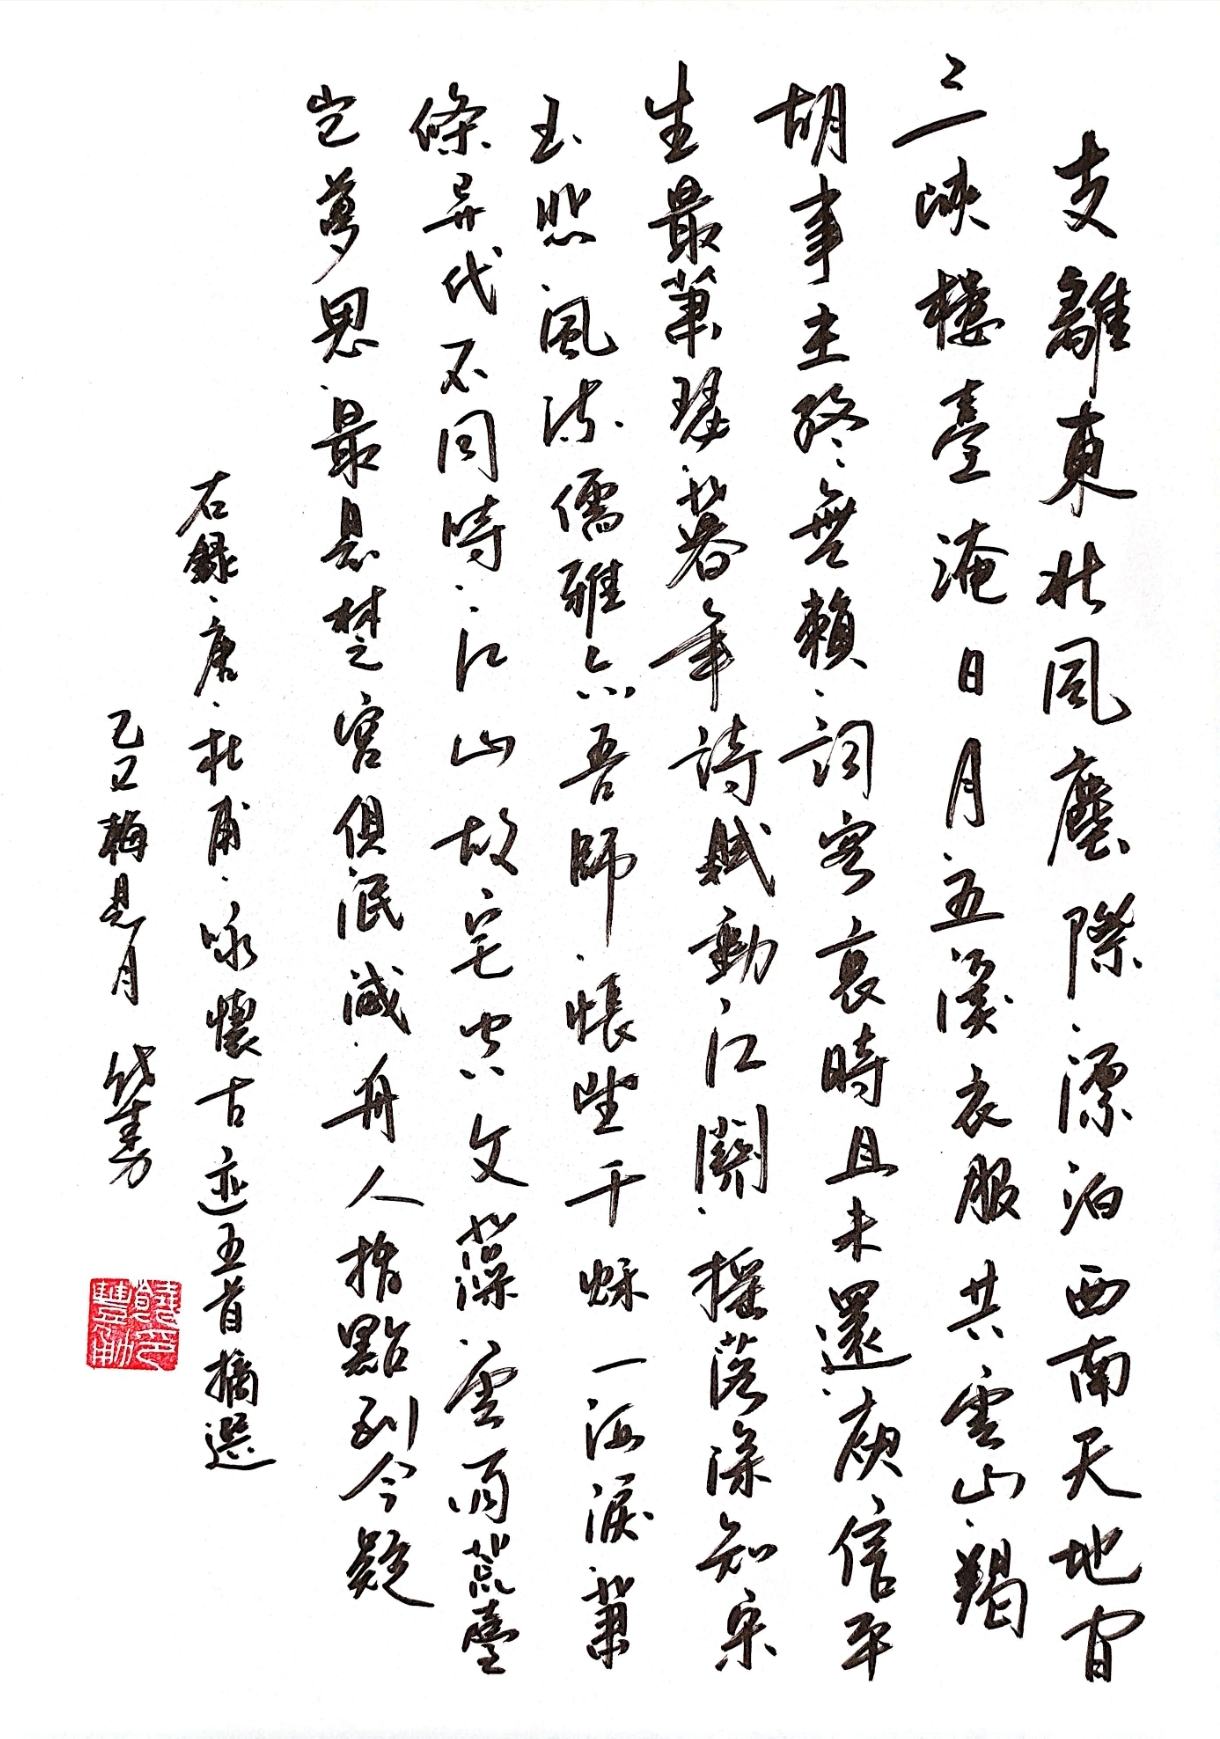 支離東北風塵際漂泊西南天地間
三峽樓臺淹日月五溪衣服共雲山羯
胡事主終無賴詞客哀時且未還庾信平
生最蕭瑟暮年詩賦動江關搖落深知宋
玉悲風流儒雅亦吾師悵望千秋一洒淚蕭
條异代不同時江山故宅空文藻雲雨荒臺
豈夢思最是楚宮俱泯滅舟人指點到今疑
右錄唐杜甫咏懷古迹五首摘選
乙巳梅見月